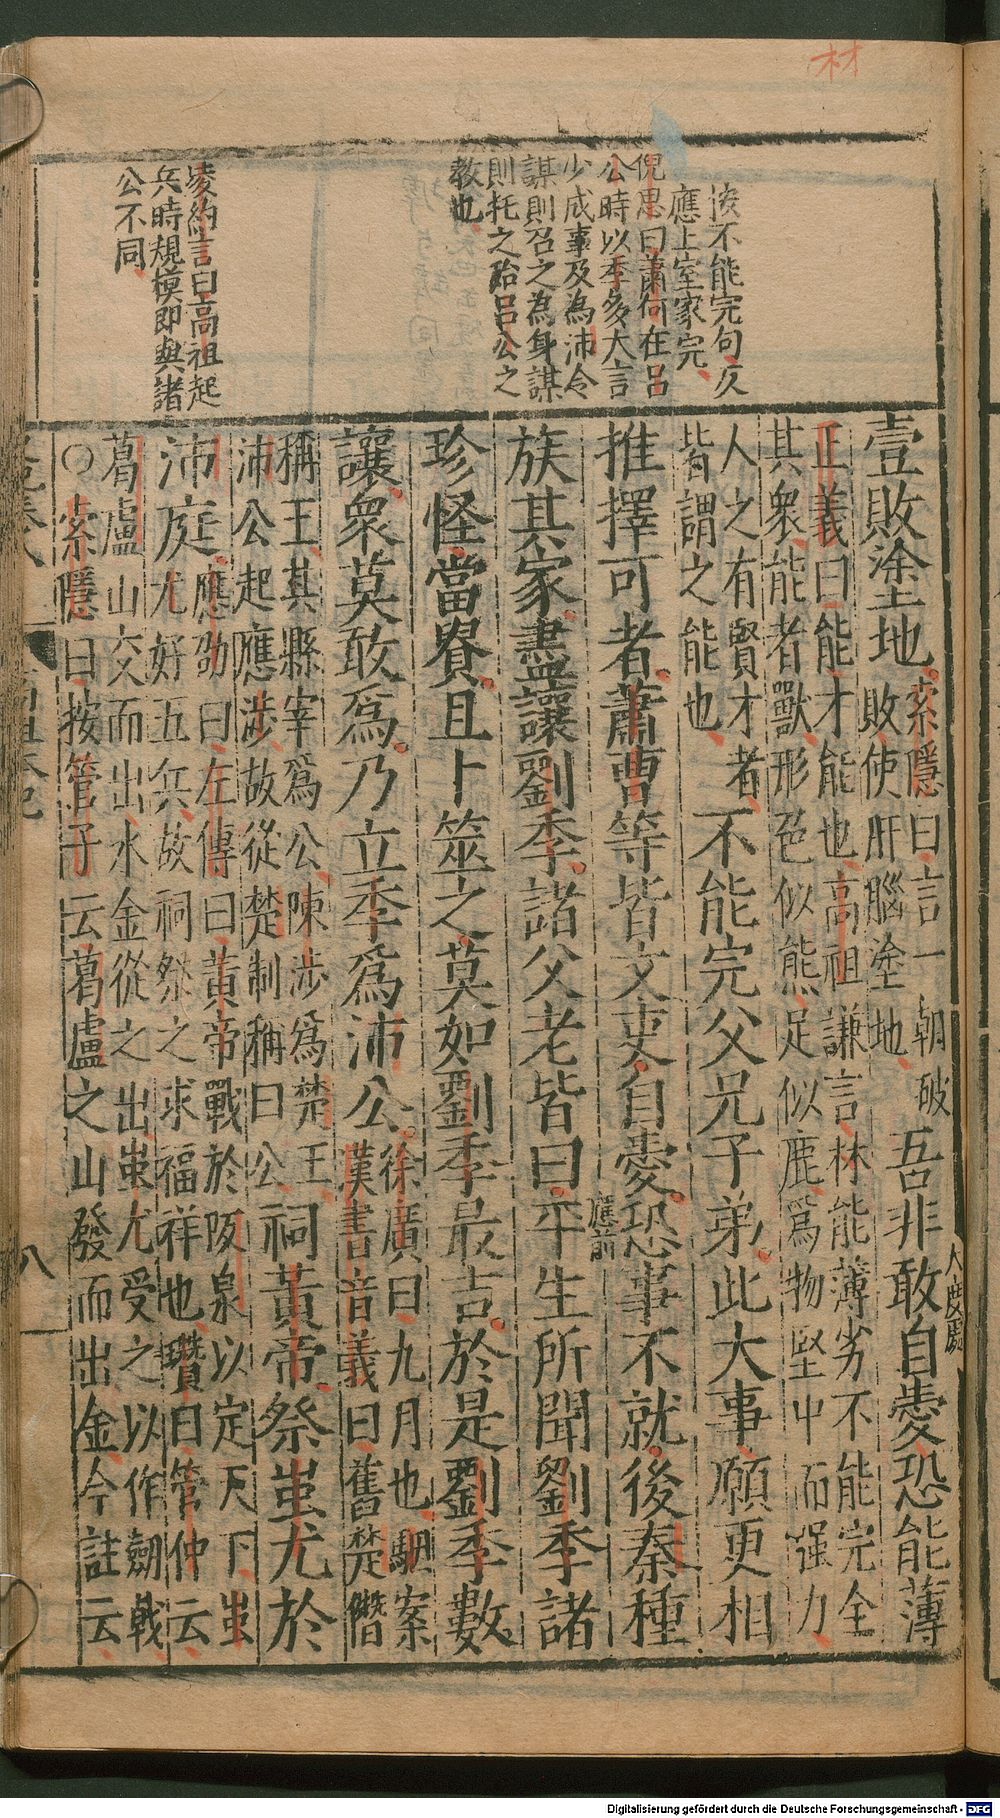 材
後不能完句仄
應上室家完
倪思曰蕭何在呂
公時以季多大言
少成事及為沛令
謀則召之為身謀
則托之跆呂公之
教也
凌約言曰高祖起
兵時規模即與諸
公不同
壹敗塗地索隱曰言一朝破
敗使肝腦塗地吾非敢自愛恐能薄
正義曰能才能也高祖謙言林能薄劣不能完全
其衆能者獸形色似熊足似鹿爲物堅中而强力
人之有賢才者
皆謂之能也不能完父兄子弟此大事願更相
推擇可者蕭曹等皆文吏自愛恐事不就後秦種
族其家盡讓劉季諸父老皆曰平生所聞劉季諸
珍怪當貴且卜筮之莫如劉季最吉於是劉季數
讓衆莫敢爲乃立季爲沛公徐廣曰九月也駰案
漢書音義曰舊楚僭
稱王其縣宰爲公陳涉爲楚王
沛公起應涉故從楚制稱曰公祠黃帝祭蚩尤於
沛庭應劭曰左傳曰黃帝戰於阪泉以定天下蚩
尤好五兵故祠祭之求福祥也瓚曰管仲云
葛盧山交而出水金從之出蚩尤受之以作劒戟
○索隱曰按管子云葛盧之山發而出金今註云
人度處
應前
八
Digitalisierung gefördert durch die Deutsche Forschungsgemeinschaft - DFG